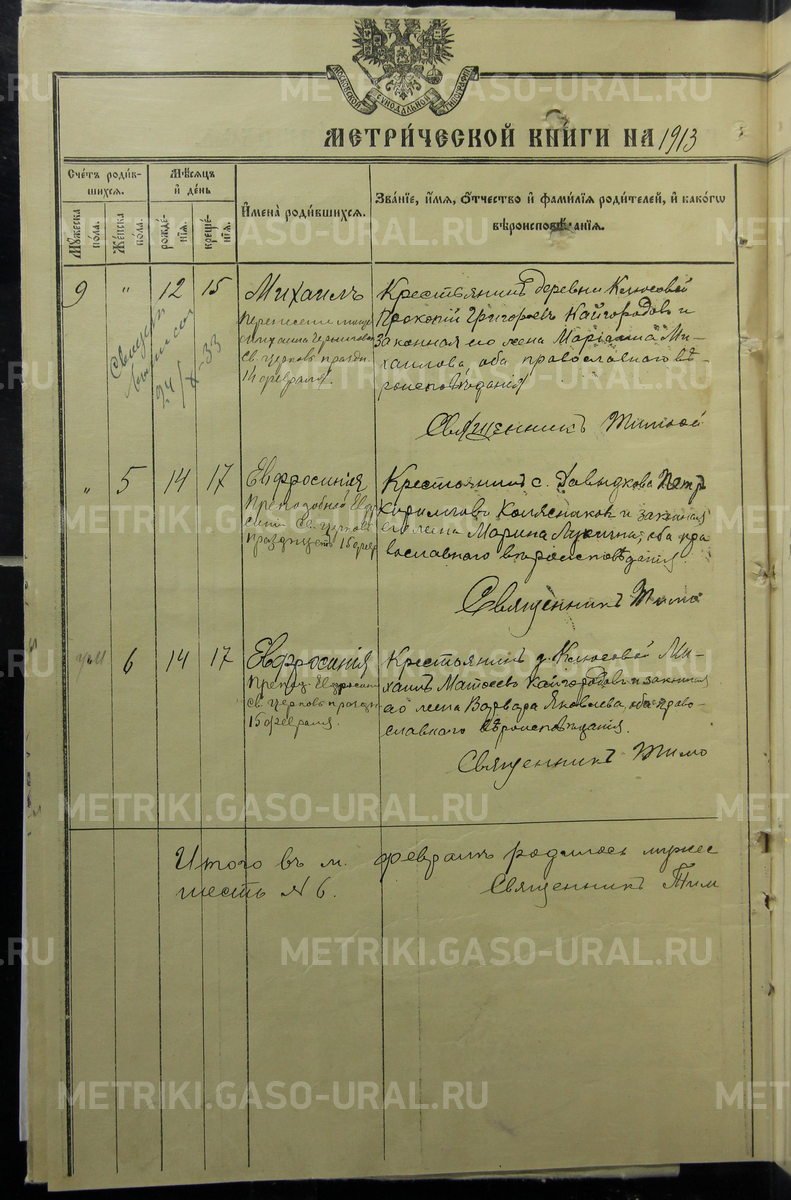 МОСКОВСКОЙ СѴНОДАЛЬНОЙ ТИПОГРАФІИ
METRIKI.GASO-URAL.RU
МЕТРИ́ЧЕСКОЙ КНИ́ГИ НА 1913
Сче́тъ роди́вшихся.
Мѣ́сяцъ и҆ де́нь
И҆мена̀ роди́вшихся.
Зва́нїе, и҆́мя, Ѻ҆́тчество и҆ фами́лїя роди́телей, и҆ како́гѡ вѣроисповѣ́данїя.
Мꙋ́жеска по́ла.
Же́нска по́ла.
рожде́нїя.
креще́нїя.
9 " 12 15 Михаилъ
Перенесени мощей
Михаила Черниговск
Св. Церковь праздн.
14 февраля.
24/X 33
Крестьянинъ деревни Клюсовой
Прокопій Григорьевъ Кайгородовъ и
законная его жена Маріанна Ми-
хаилова, оба православнаго вѣ-
роисповѣданія
Священникъ Тимоѳей
" 5 14 17 Евфросинія
Преподобной Евфро
синіи Св. Церковь
празднуетъ 15 февр
Крестьянинъ с. Давыдкова Петръ
Кирилловъ Колясниковъ и законная
его жена Марина Лукична, оба пра
вославнаго вѣроисповѣданія.
Священникъ Тимо
6 14 17 Евфросинія
Препод. Евфросиніи
Св. Церковь праздн
15 февраля.
Крестьянинъ д. Клюсовой Ми-
хаилъ Матѳеевъ Кайгородовъ и законная
его жена Варвара Яковлева, оба право-
славнаго вѣроисповѣданія.
Священникъ Тимо
Итого въ м. февралѣ родилось мужес
шесть № 6.
Священникъ Тим